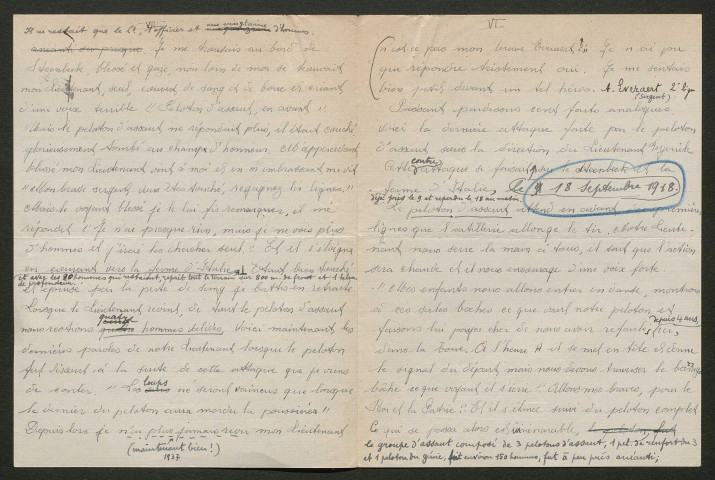 VII
Il ne restait que le Lt, 1 officier et une vingtaine d'hommes.
Je me trouvais au bord de
Steenbeek, blessé et gazé, non loin de moi se trouvait
mon Lieutenant, seul, couvert de sang et de boue et criant
d'une voix terrible "Peloton d'assaut, en avant"
Mais le peloton d'assaut ne répondait plus, il était couché,
glorieusement tombé au champ d'honneur. M'apercevant
blessé mon Lieutenant vint à moi et en m'embrassant me dit
"Mon brave sergent, vous êtes touché, regagnez les lignes."
Mais le voyant blessé je le lui fis remarquer, et me
répondit "Je n'ai presque rien, mais je ne vois plus
d'hommes et j'irai les chercher seul." Et il s'éloigna
en courant vers la ferme d'Italie. Etant bien touché
et avec les 20 hommes qui restaient, reprit tout le terrain sur 800 m. de front et 1 kilom. de profondeur.
et épuisé par la perte de sang je battis en retraite
Lorsque le Lieutenant revint, de tout le peloton d'assaut
nous restions quatre hommes et lui. Voici maintenant les
dernières paroles de notre Lieutenant lorsque le peloton
fut dissout à la suite de cette attaque que je viens
de conter. "Les loups ne seront vaincus que lorsque
le dernier du peloton aura mordu la poussière"
Depuis lors je n'ai plus jamais revu mon Lieutenant
(maintenant bien!)
1937
VI
n'est-ce pas mon brave Everaert?" Je n'ai pu
que répondre tristement oui. Je me sentais
bien petit devant un tel héros. A. Everaert 2e Lign
(Sergent)
Passant plusieurs cent faits analogues,
voici la dernière attaque faite par le peloton
d'assaut sous la direction du Lieutenant
contre
la Steenbeek et la
ferme d'Italie, le 18 Septembre 1918.
Déjà prise le 9 et reperdue le 18 au matin.
Le peloton d'assaut attend en avant des premières
lignes que l'artillerie allonge le tir, et notre Lieute-
nant nous serre la main à tous, il sait que l'action
sera chaude et il nous encourage d'une voix forte
"Mes enfants nous allons entrer en danse, montrons
à ces sales boches ce que vaut notre peloton et
faisons lui payer cher de nous avoir refoulés, depuis 4 ans, ici,
dans la boue. A l'heure H il se met en tête et donne
le signal du départ mais nous devons traverser le barrage
boche ce que voyant il s'écrie "Allons mes braves, pour le
Roi et la Patrie" Et il s'élance suivi du peloton complet
Ce qui se passa alors est inénarrable,
le groupe d'assaut composé de 3 pelotons d'assaut, 1 pel. de renfort du 3
et 1 peloton du génie, soit environ 150 hommes, fut à peu près anéanti;